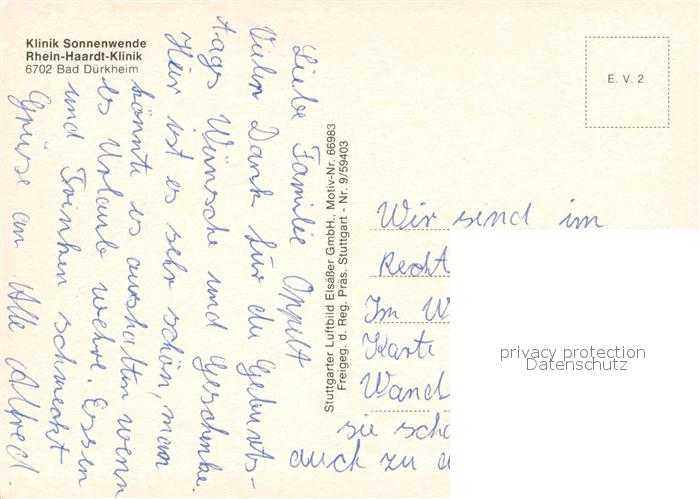 Klinik Sonnenwende
Rhein-Haardt-Klinik
6702 Bad Dürkheim
E. V. 2
Liebe Familie Oppelt
Vielen Dank für die Geburts-
tags Wünsche und Geschenke.
Hier ist es sehr schön, man
könnte es aushalten wenn
es Urlaub wehre. Essen
und Trinken schmeckt
Grüse an Alle Alfred.
Stuttgarter Luftbild Elsäßer GmbH., Motiv-Nr. 66983
Freigeg. d. Reg. Präs. Stuttgart - Nr. 9/59403
Wir sind im
Recht
Im W
Karte
Wand
sie scho
auch zu
privacy protection
Datenschutz